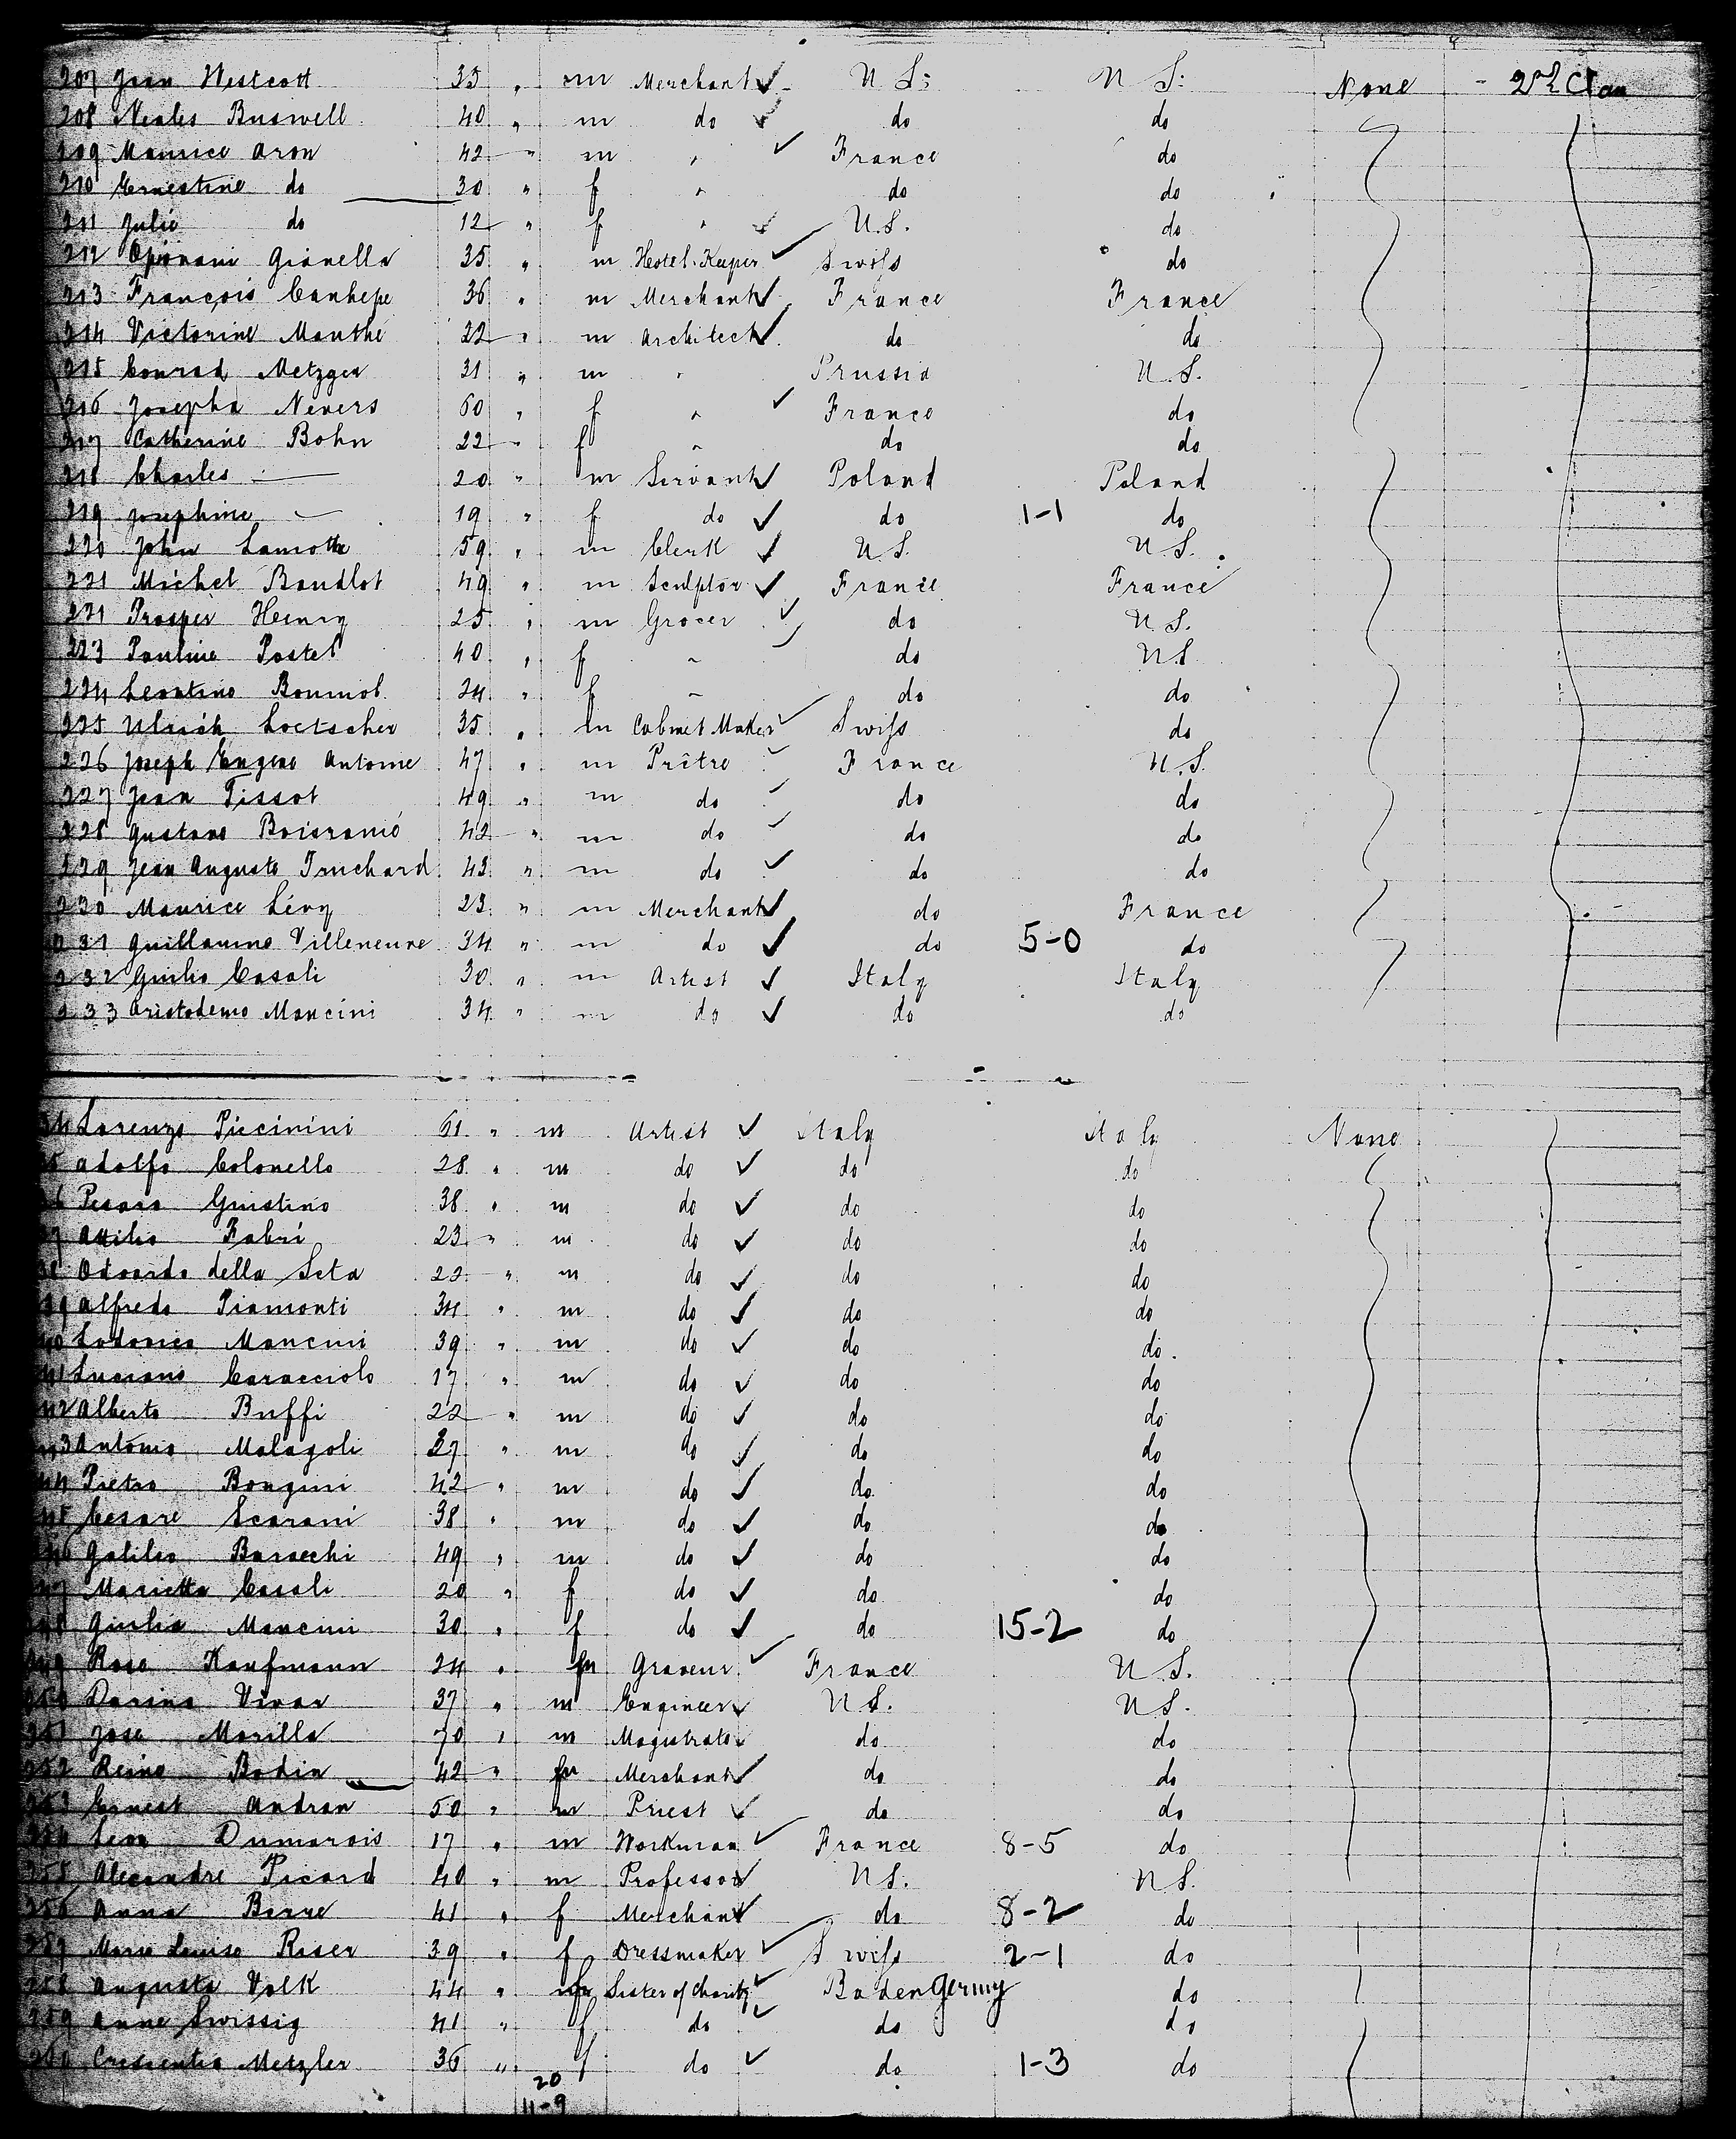 207 Jean Westcott 35 " m Merchant ✓ U S: U S: None - 2nd Class
208 Neales Buswell 40 " m do ✓ do do
209 Maurice Aron 42 " m " ✓ France do
210 Ernestine do 30 " f " do do
211 Julie do 12 " f " ✓ U.S. do
212 Gianella 35 " m Hotel-Keeper ✓ Swiss do
213 François Canhepe 36 " m Merchant ✓ France France
214 Victorine Manthe 22 " m Architect ✓ do do
215 Conrad Metzger 31 " m " Prussia U.S.
216 Josepha Nevers 60 " f " ✓ France do
217 Catherine Bohn 22 " f " do do
218 Charles — 20 " m Servant ✓ Poland Poland
219 Josephine — 19 " f do ✓ do 1-1 do
220 John Lamotte 59 " m Clerk ✓ U S. U S.
221 Michel Baudlot 49 " m Sculptor ✓ France France
221 Prosper Henry 25 " m Grocer ✓ do U.S.
223 Pauline Postel 40 " f " ✓ do U S
224 Leontine Bonmol 24 " f " do do
225 Ulrich Loetscher 35 " m Cabinet Maker ✓ Swiss do
226 Joseph Eugene Antoine 47 " m Prêtre ✓ France U.S.
227 Jean Tissot 49 " m do ✓ do do
228 Gustave 42 " m do ✓ do do
229 Jean Auguste Truchard 43 " m do ✓ do do
230 Maurice Lévy 23 " m Merchant ✓ do France
231 Guillaume Villeneuve 34 " m do ✓ do 5-0 do
232 Giulio Casali 30 " m Artist ✓ Italy Italy
233 Aristodemo Mancini 34 " m do ✓ do do
34 Lorenzo Piccinini 61 " m Artist ✓ Italy Italy None
35 Adolfo Colonello 28 " m do ✓ do do
36 Pesaro Giustino 38 " m do ✓ do do
37 Attilio Fabri 23 " m do ✓ do do
38 Odoardo della Seta 22 " m do ✓ do do
39 Alfredo Piamonti 34 " m do ✓ do do
40 Lodovico Mancini 39 " m do ✓ do do
41 Luciano Caracciolo 17 " m do ✓ do do
42 Alberto Buffi 22 " m do ✓ do do
43 Antonio Malagoli 27 " m do ✓ do do
44 Pietro Bongini 42 " m do ✓ do do
245 Cesare Scarani 38 " m do ✓ do do
246 Galileo Baracchi 49 " m do ✓ do do
247 Marietta Casali 20 " f do ✓ do do
248 Giulia Mancini 30 " f do ✓ do 15-2 do
249 Rose Kaufmann 24 " f Graveur ✓ France U S.
250 Darino Vivar 37 " m Engineer ✓ U S. U S.
251 Jose Morilla 70 " m Magistrate ✓ do do
252 Reine Bodin 42 " f Merchant ✓ do do
253 Ernest Andran 50 " m Priest ✓ do do
254 Leon Dumarais 17 " m Workman ✓ France 8-5 do
255 Alexandre Picard 40 " m Professor ✓ U S. U S.
256 Anna 41 " f Merchant ✓ do 8-2 do
257 Marie Louise Riser 39 " f Dressmaker ✓ Swiss 2-1 do
258 Augusta Volk 44 " f Sister of Charity ✓ Baden Germy do
259 Anne Swissig 41 " f do ✓ do do
260 Crescentia Metzler 36 " f do ✓ do 1-3 do
20
11-9